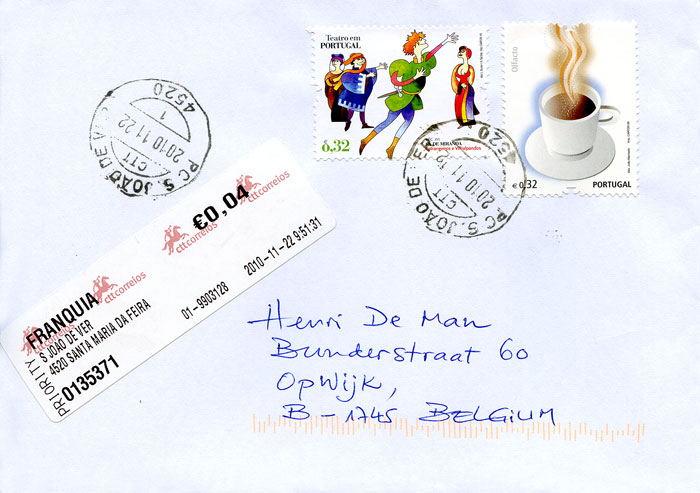 Teatro em
PORTUGAL
DE MIRANDA
e Vilhalpandos
0,32
Olfacto
€ 0.32
PORTUGAL
4520
1
2010 11 22
CTT
PC S. JOÃO DE
4520
2010 11
CTT
PC S. JOÃO DE
€0,04
ctt correios
ctt correios
ctt correios
PRIORITY
FRANQUIA
S JOAO DE VER
4520 SANTA MARIA DA FEIRA
0135371
01-9903128
2010-11-22 9:51:31
Henri De Man
Bunderstraat 60
Opwijk,
B-1745 BELGIUM